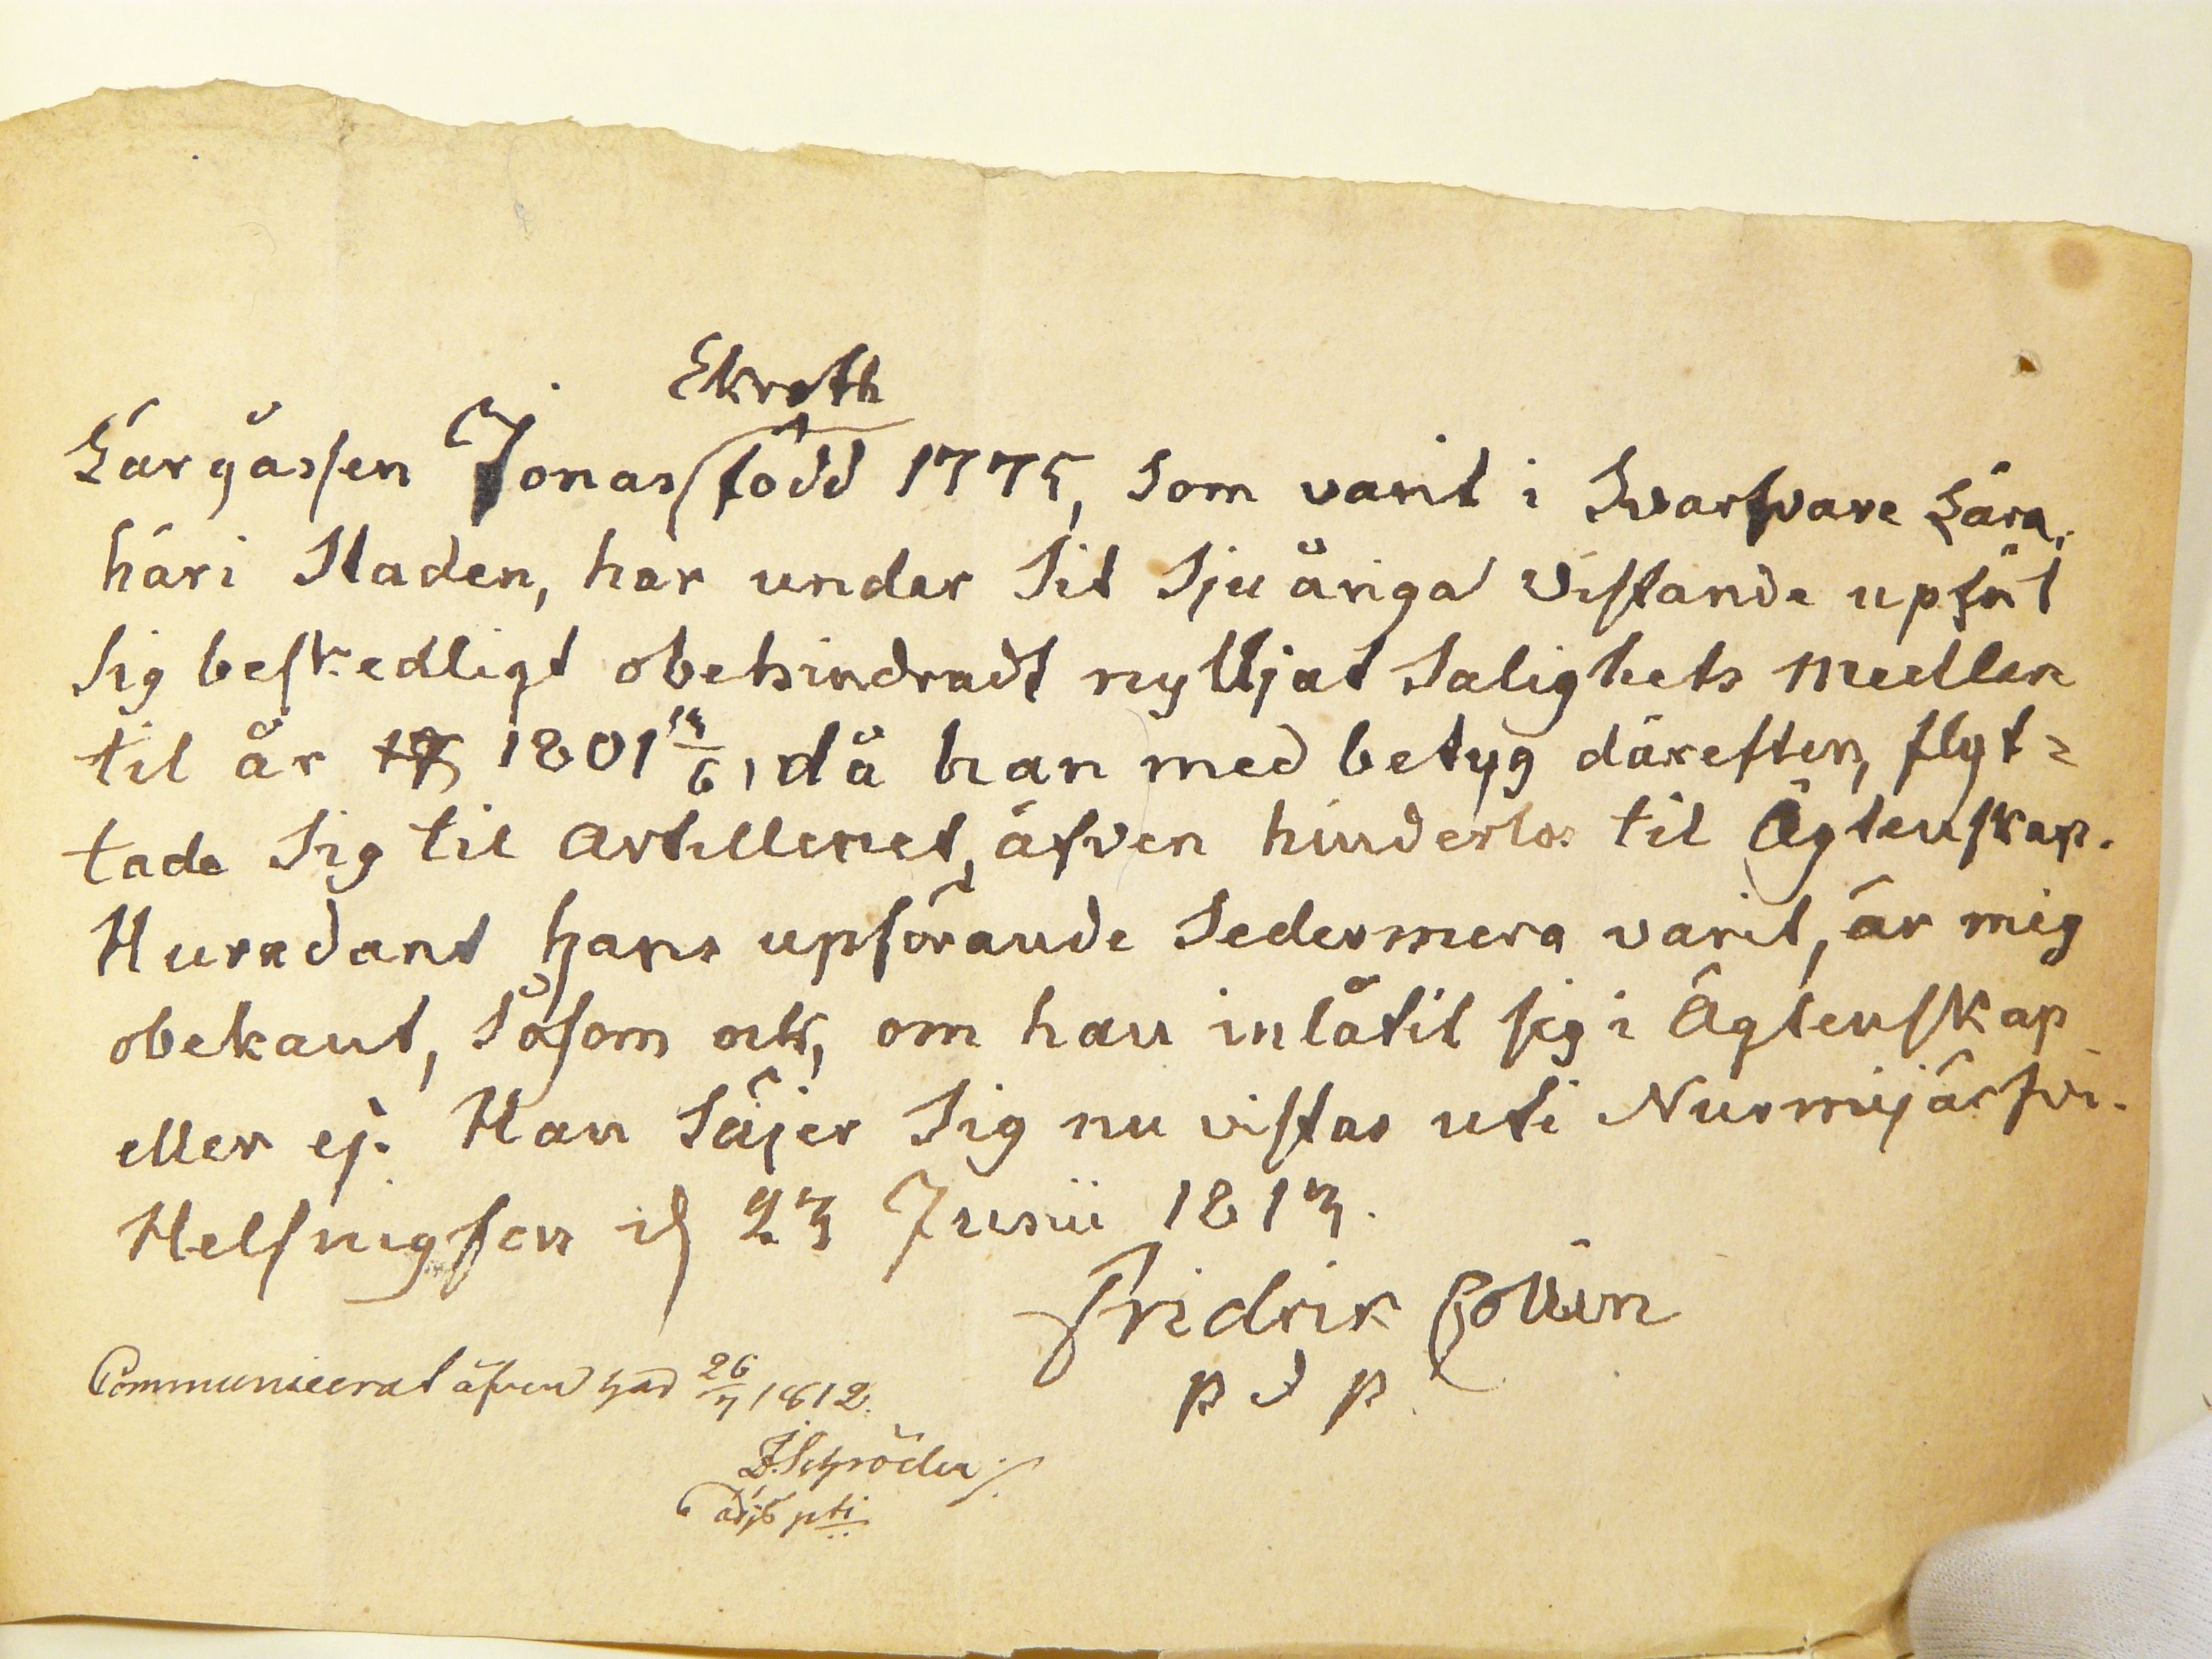 Ekroth
Lärgåssen Jonas född 1775, som varit i Svarfvare Lära,
häri Staden, har under Sit Sju åriga vistande upfört
Sig beskedligt obehindradt nyttjat Salighets Medlen
til år 1801 14/6, då han med betyg därefter, flyt=
tade Sig til Artilleriet, äfven hinderlös til Ägtenskap.
Huradant hans upförande Sedermera varit, är mig
obekant, Såsom ock, om han inlåtit sig i Ägtenskap
eller ej. Han Säjer Sig nu vistas uti Nurmijärfvi.
Helsingfors d 23 Junii 1813.
Fridrik Collin
p d p
Communicerat äfven här 26/7 1812.
Schröder
adj pti